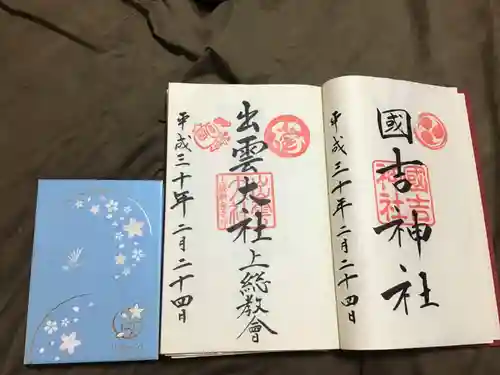 國吉神社
國吉神社
平成三十年二月二十四日
出雲大社上総教會
平成三十年二月二十四日